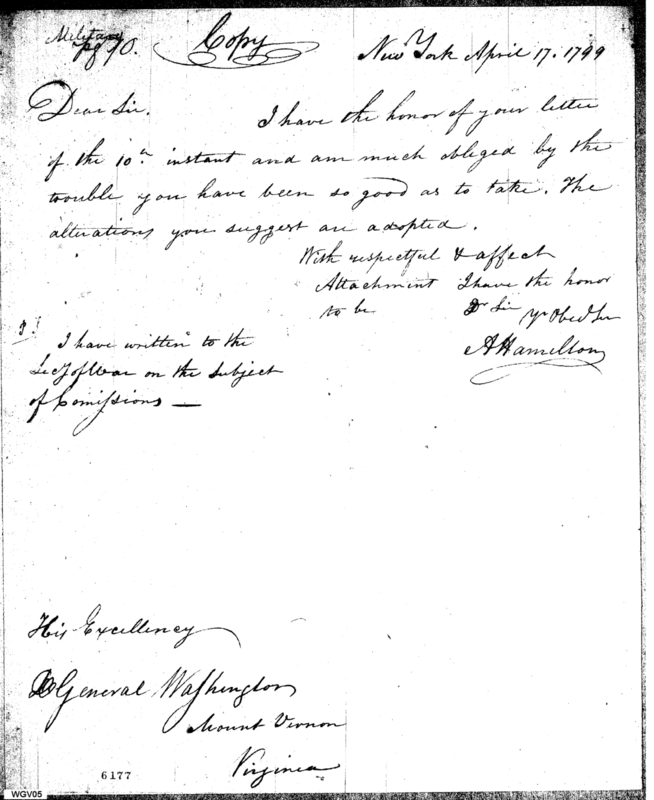 Military
pg 70.
Copy
New York April 17. 1799
Dear Sir.
I have the honor of your letter
of the 10th instant and am much obliged by the
trouble you have been so good as to take. The
alterations you suggest are adopted.
With respectful & affect
Attachment I have the honor
to be Dr Sir Yr Obed Ser
AHamilton
I have written to the
Secy of War on the subject
of Comissions —
His Excellency
General Washington
Mount Vernon
Virginia
6177
WGV05